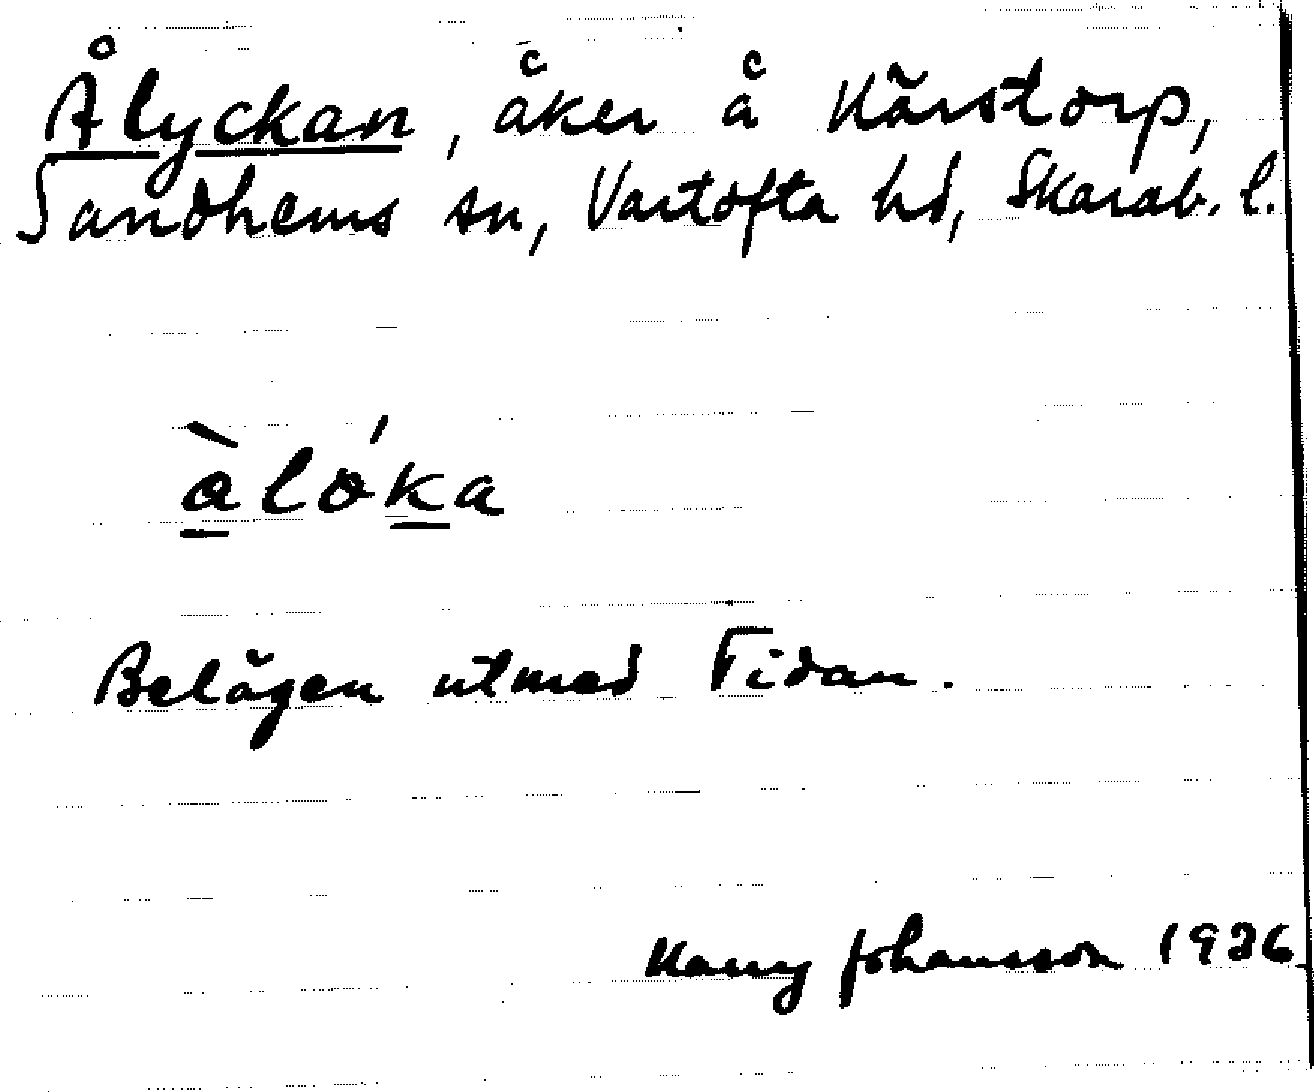 Ålyckan, åker å Kärstorp,
Sandhems sn, Vartofta hd, Skarab. l.
àlóka
Belägen utmed Tidan.
Harry Johansson 1926